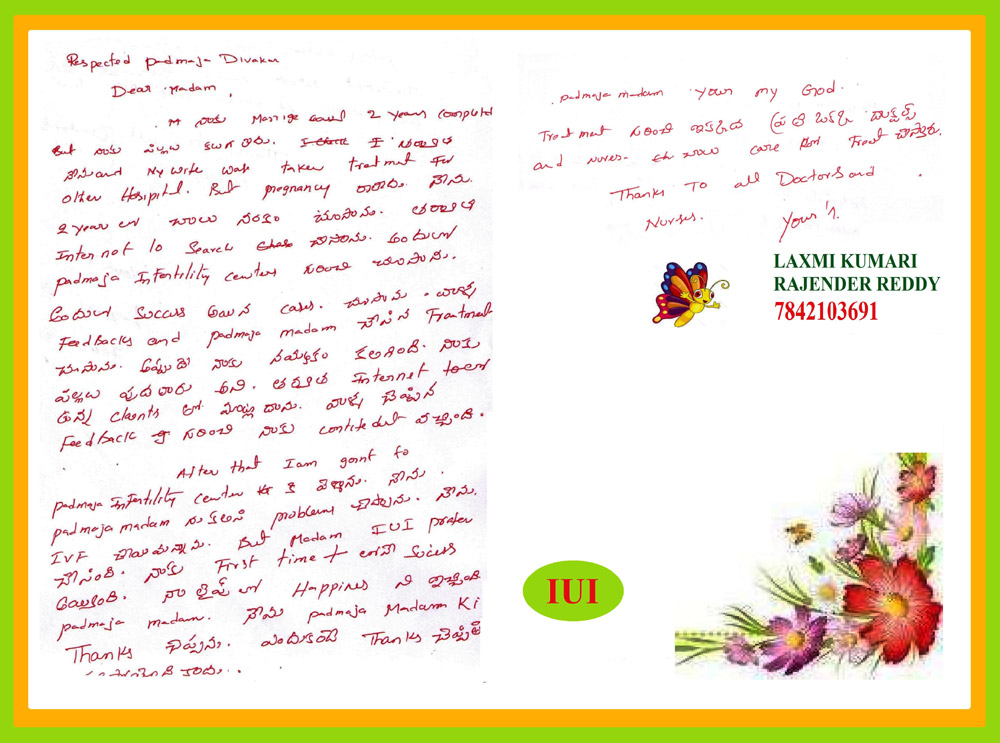 Respected Padmaja Divakar
Dear Madam,
నాకు Marriage 2 years completed
But నాకు పిల్లలు కలగ లేదు. I
నేను and My wife was taken treatment for
other Hospital. But pregnancy రాలేదు. నేను
2 year లో చాలు చూసాను. తరువాత
Internet lo Search చేసాను. అందులో
padmaja Infertility centers గురించి చూసాను.
అందులో success అయిన cases. చూసాను. వాళ్ళ
Feedbacks and padmaja madam చేసిన Treatment
చూసాను. అప్పుడే నాకు నమ్మకం కలిగింది. నాకు
పిల్లలు పుడతారు అని. తరువాత Internet
ఉన్న clients తో మాట్లాడాను. వాళ్ళు చెప్పిన
Feedback గురించి నాకు confident వచ్చింది.
After that I am going to
padmaja Infertility center కి వెళ్ళాను. నేను
padmaja madam ను కలిసి problems చెప్పాను. నేను
IVF చేయమన్నాను. But Madam IUI prefer
చేసింది. నాకు First time లోనే success
అయ్యింది. నా లైఫ్ లో Happines ని ఇచ్చింది
padmaja madam. నేను padmaja Madam Ki
Thanks చెప్పను. ఎందుకంటే Thanks చెప్పితే
padmaja madam your my God.
Treatment గురించి ఇక్కడ ప్రతి ఒక్కరు డాక్టర్స్
and nurses. చాలు care and Treat చేస్తారు.
Thanks To all Doctors and
Nurses. Your's.
LAXMI KUMARI
RAJENDER REDDY
7842103691
IUI